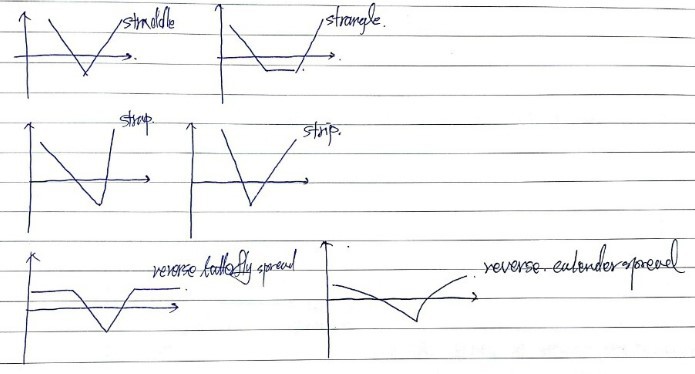 straddle
strangle.
strap.
strip.
reverse butterfly spread
reverse calender spread